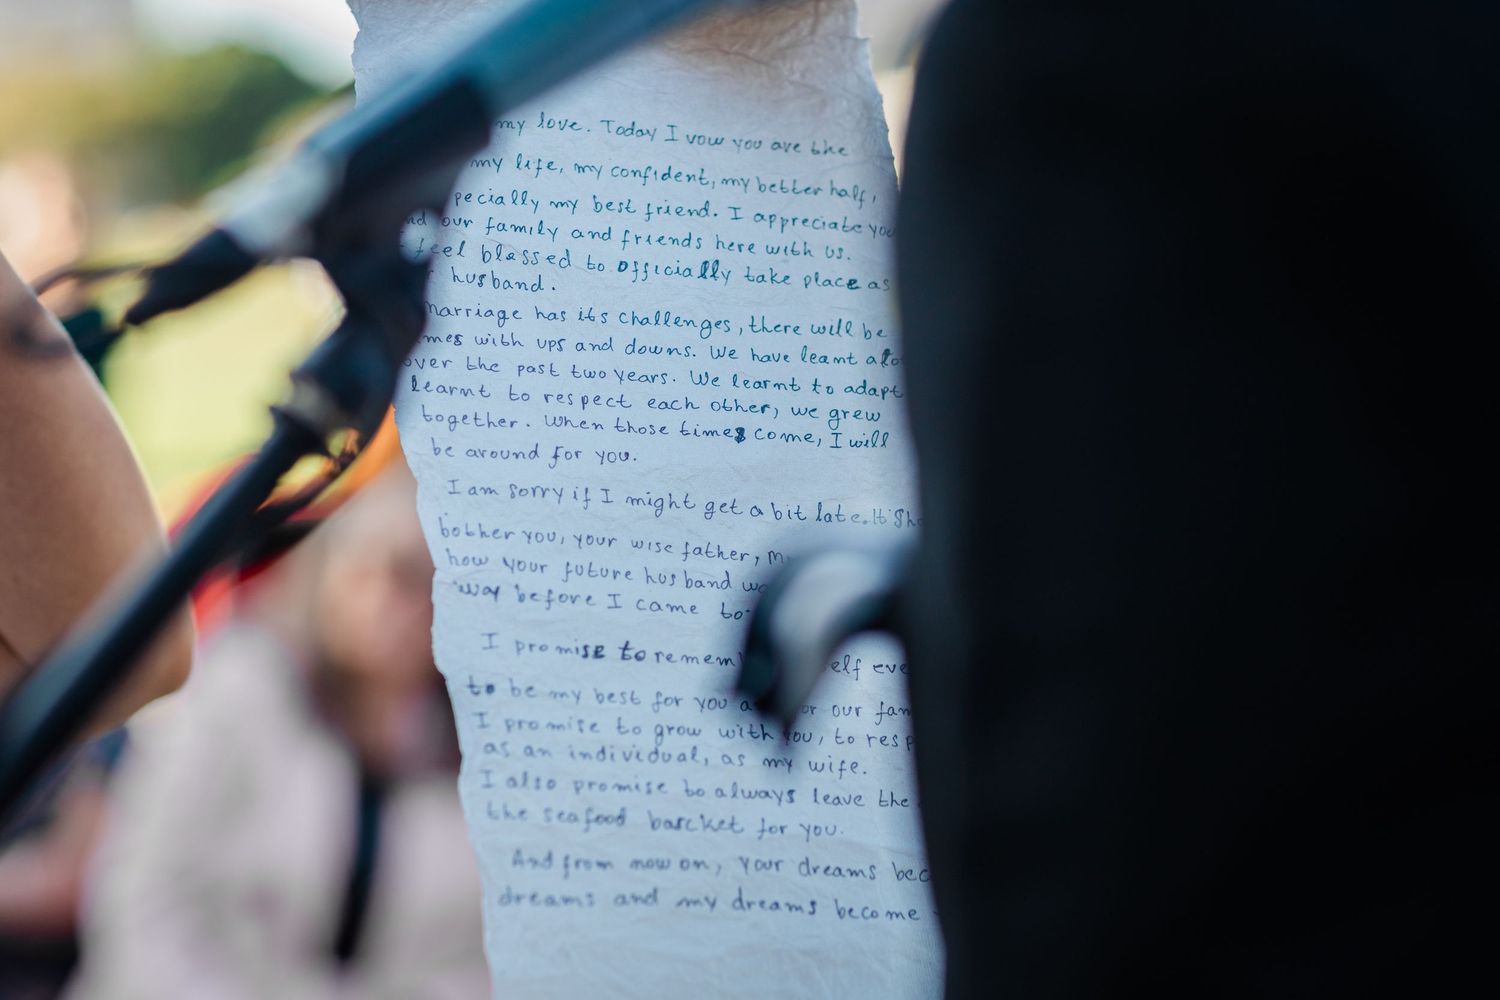 my love. Today I vow you are the
my life, my confident, my better half,
pecially my best friend. I appreciate you
nd our family and friends here with us.
feel blessed to officially take place as
husband.
marriage has its challenges, there will be
mes with ups and downs. We have learnt alo
over the past two years. We learnt to adapt
learnt to respect each other, we grew
together. When those times come, I will
be around for you.
I am sorry if I might get a bit late. It sho
bother you, your wise father, m
how your future husband wa
way before I came to
I promise to remem elf eve
to be my best for you a or our fam
I promise to grow with you, to resp
as an individual, as my wife.
I also promise to always leave the
the seafood barcket for you.
And from now on, your dreams bec
dreams and my dreams become